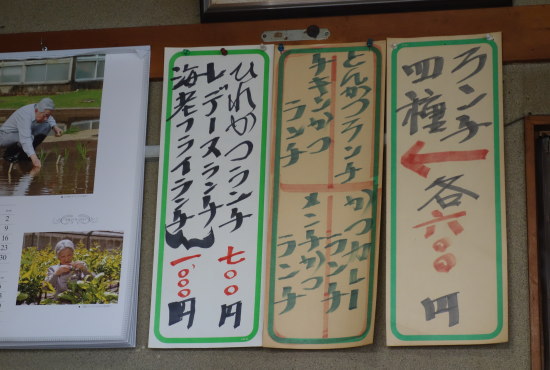 ランチ
四種
各六〇〇円
とんかつランチ
チキンかつ
ランチ
かつカレー
ランチ
メンチかつ
ランチ
ひれかつランチ
レデースランチ 七〇〇円
海老フライランチ 一,〇〇〇円
2
9
16
23
30